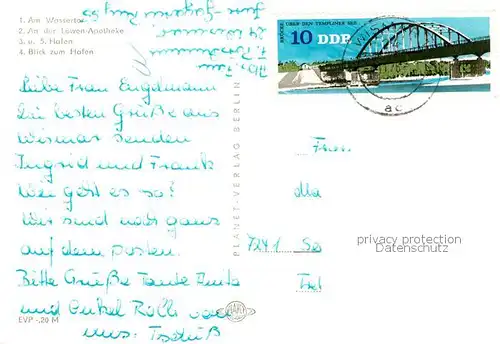 1. Am Wassertor
2. An der Löwen-Apotheke
3. u. 5. Hafen
4. Blick zum Hafen
Liebe Frau Engelmann
Die besten Grüße aus
Wismar senden
Ingrid und Frank
Wie geht es so?
Wir sind noch ganz
auf dem posten.
Bitte Grüße Tante Anita
und Onkel Rolli von
uns. Tschüß
EVP -,20 M
PLANET-VERLAG BERLIN
BRÜCKE ÜBER DEN TEMPLINER SEE
10 DDR
ac
Frau
7241
privacy protection
Datenschutz